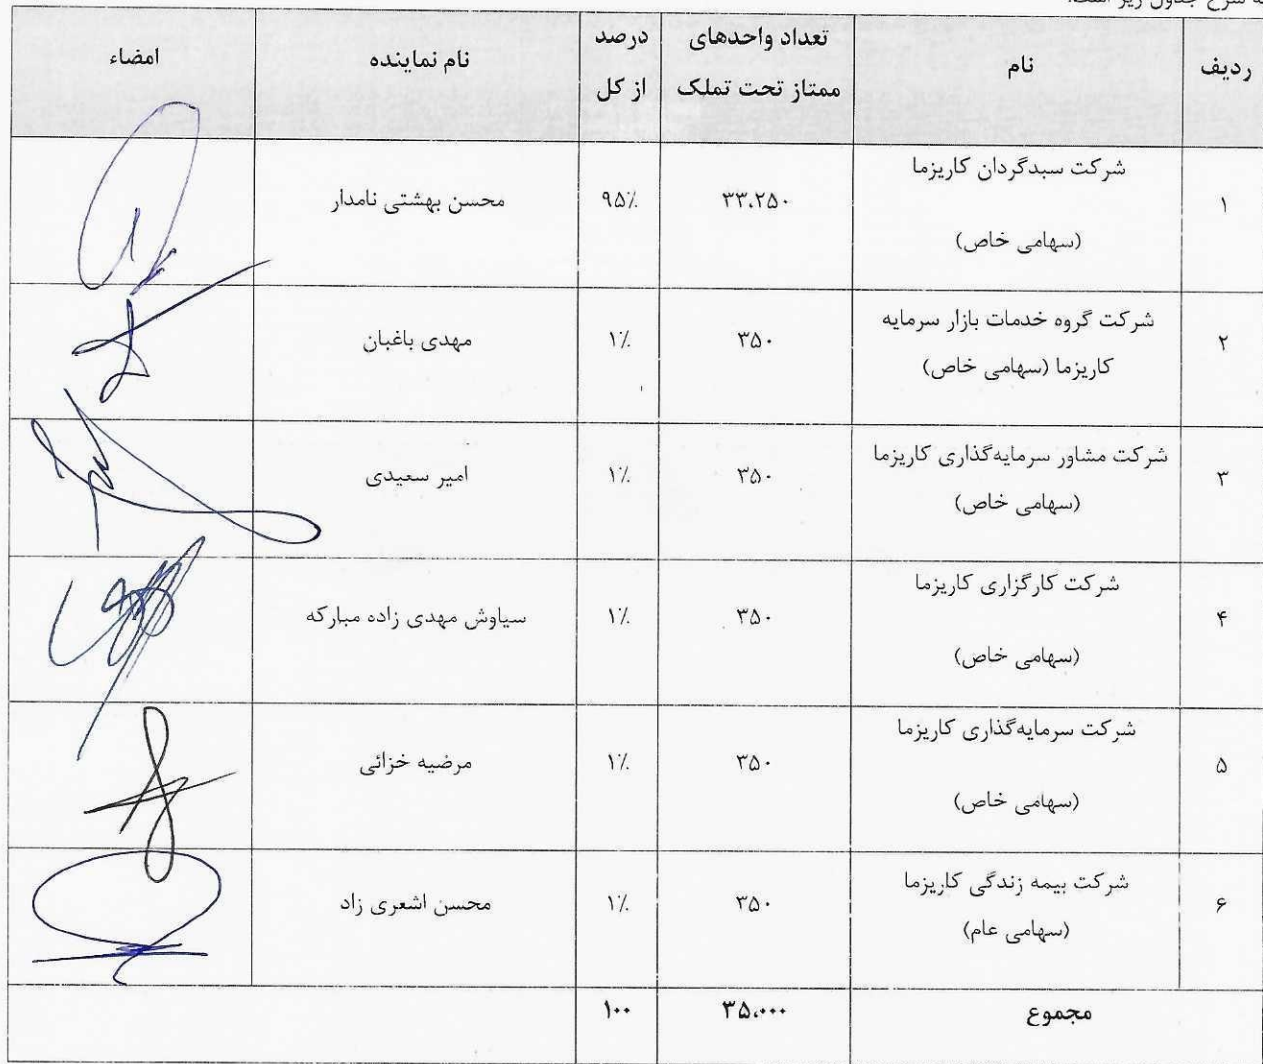 به شرح جدول زیر است:
ردیف نام تعداد واحدهای ممتاز تحت تملک درصد از کل نام نماینده امضاء
۱ شرکت سبدگردان کاریزما (سهامی خاص) ۳۳،۲۵۰ ۹۵٪ محسن بهشتی نامدار
۲ شرکت گروه خدمات بازار سرمایه کاریزما (سهامی خاص) ۳۵۰ ۱٪ مهدی باغبان
۳ شرکت مشاور سرمایه‌گذاری کاریزما (سهامی خاص) ۳۵۰ ۱٪ امیر سعیدی
۴ شرکت کارگزاری کاریزما (سهامی خاص) ۳۵۰ ۱٪ سیاوش مهدی زاده مبارکه
۵ شرکت سرمایه‌گذاری کاریزما (سهامی خاص) ۳۵۰ ۱٪ مرضیه خزائی
۶ شرکت بیمه زندگی کاریزما (سهامی عام) ۳۵۰ ۱٪ محسن اشعری زاد
مجموع ۳۵،۰۰۰ ۱۰۰